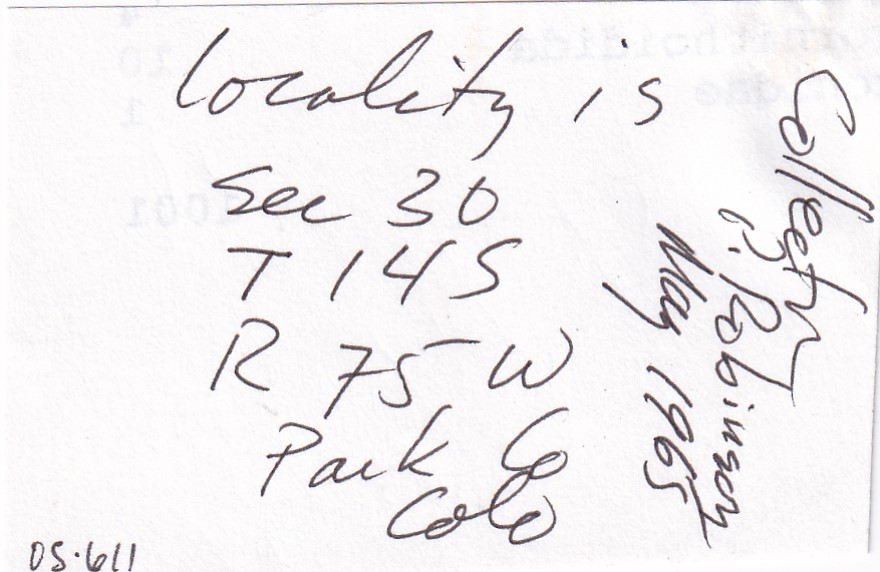 locality is
Sec 30
T 14 S
R 75 W
Park Co
Colo
Collector
P. Robinson
May 1965
OS.611